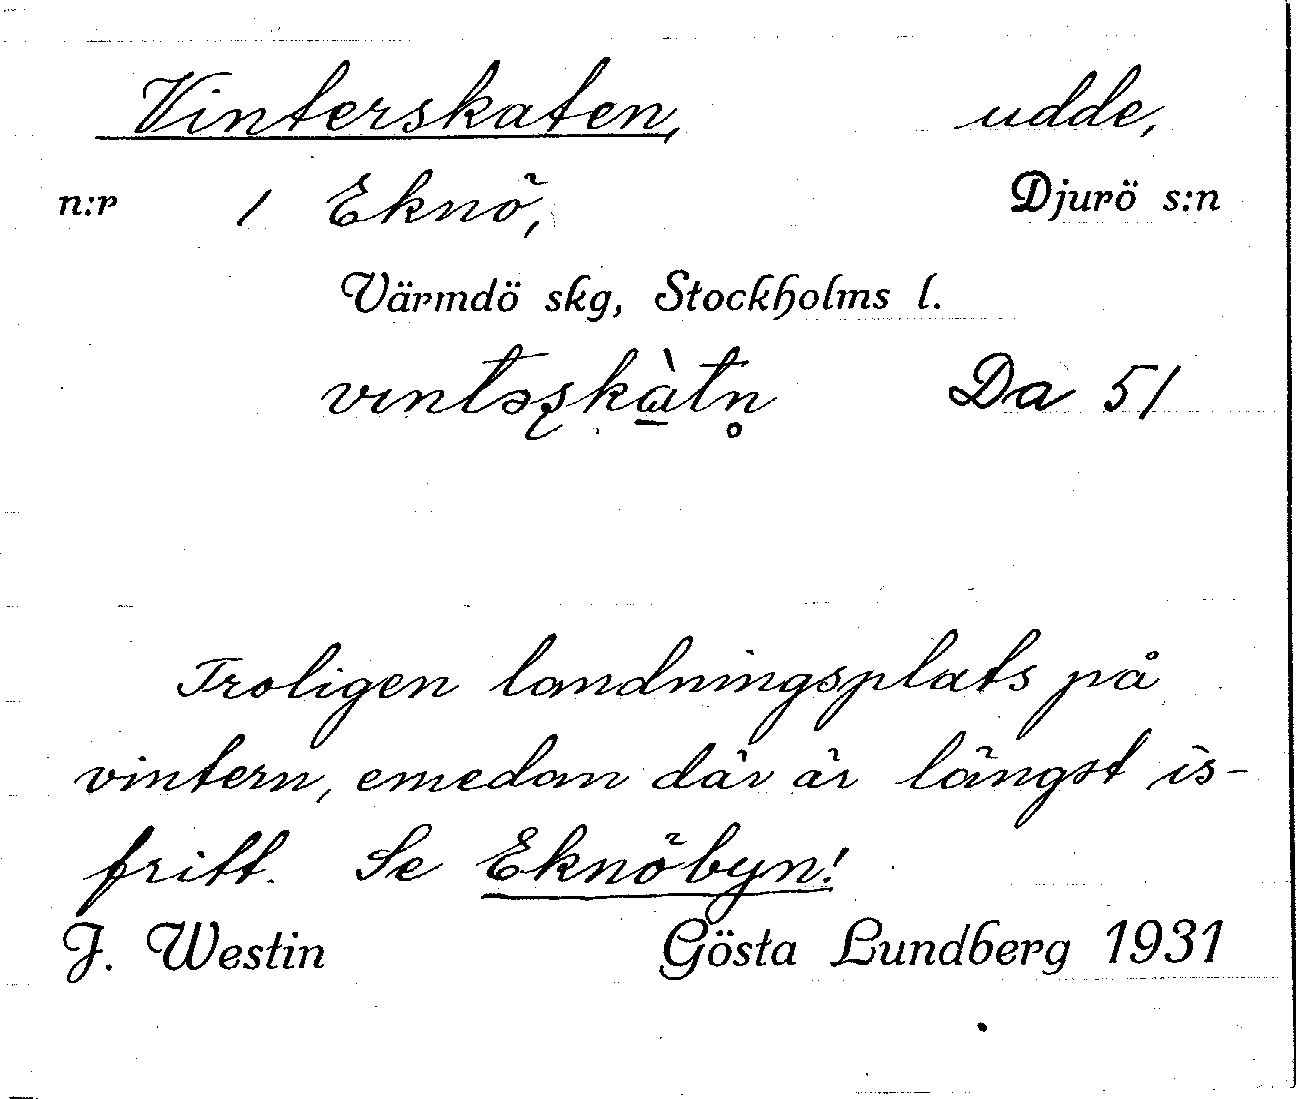 Vinterskaten, udde,
n:r 1 Eknö, Djurö s:n
Värmdö skg, Stockholms l.
vıntəʂkàtn̥ Da 51
Troligen landningsplats på
vintern, emedan där är längst is-
fritt. Se Eknöbyn!
J. Westin Gösta Lundberg 1931